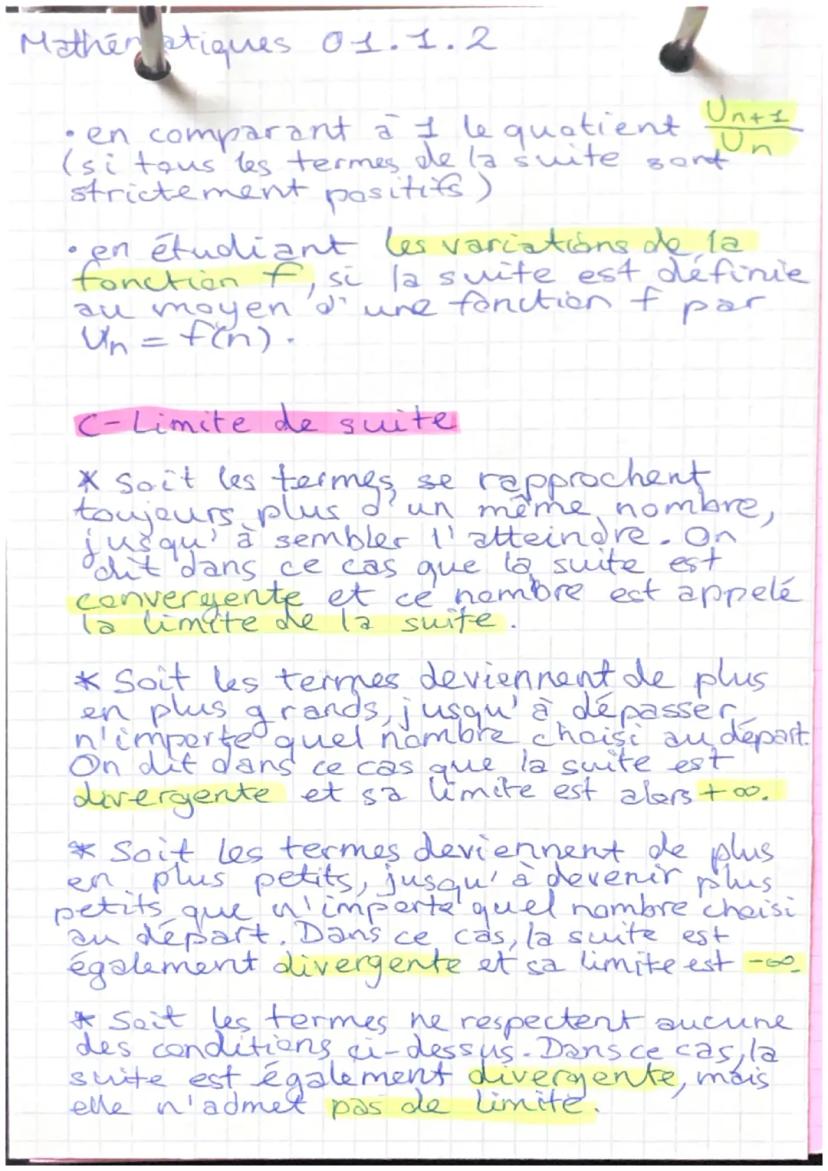 Mathématiques 01.1.2
• en comparant à 1 le quotient Un+1/Un
(si tous les termes de la suite sont
strictement positifs)
• en étudiant les variations de la
fonction f, si la suite est définie
au moyen d'une fonction f par
Un = f(n).
C-Limite de suite
* Soit les termes se rapprochent
toujours plus d'un même nombre,
jusqu'à sembler l'atteindre. On
dit dans ce cas que la suite est
convergente et ce nombre est appelé
la limite de la suite.
* Soit les termes deviennent de plus
en plus grands, jusqu'à dépasser
n'importe quel nombre choisi au départ.
On dit dans ce cas que la suite est
divergente et sa limite est alors +∞.
* Soit les termes deviennent de plus
en plus petits, jusqu'à devenir plus
petits que n'importe quel nombre choisi
au départ. Dans ce cas, la suite est
également divergente et sa limite est -∞.
* Soit les termes ne respectent aucune
des conditions ci-dessus. Dans ce cas, la
suite est également divergente, mais
elle n'admet pas de limite.